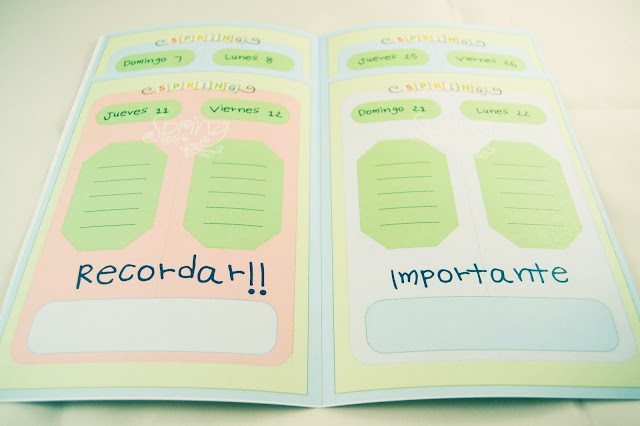 SPRING
Domingo 7 Lunes 8
SPRING
Jueves 11 Viernes 12
Spring
Recordar!!
SPRING
Jueves 25 Viernes 26
SPRING
Domingo 21 Lunes 22
Importante